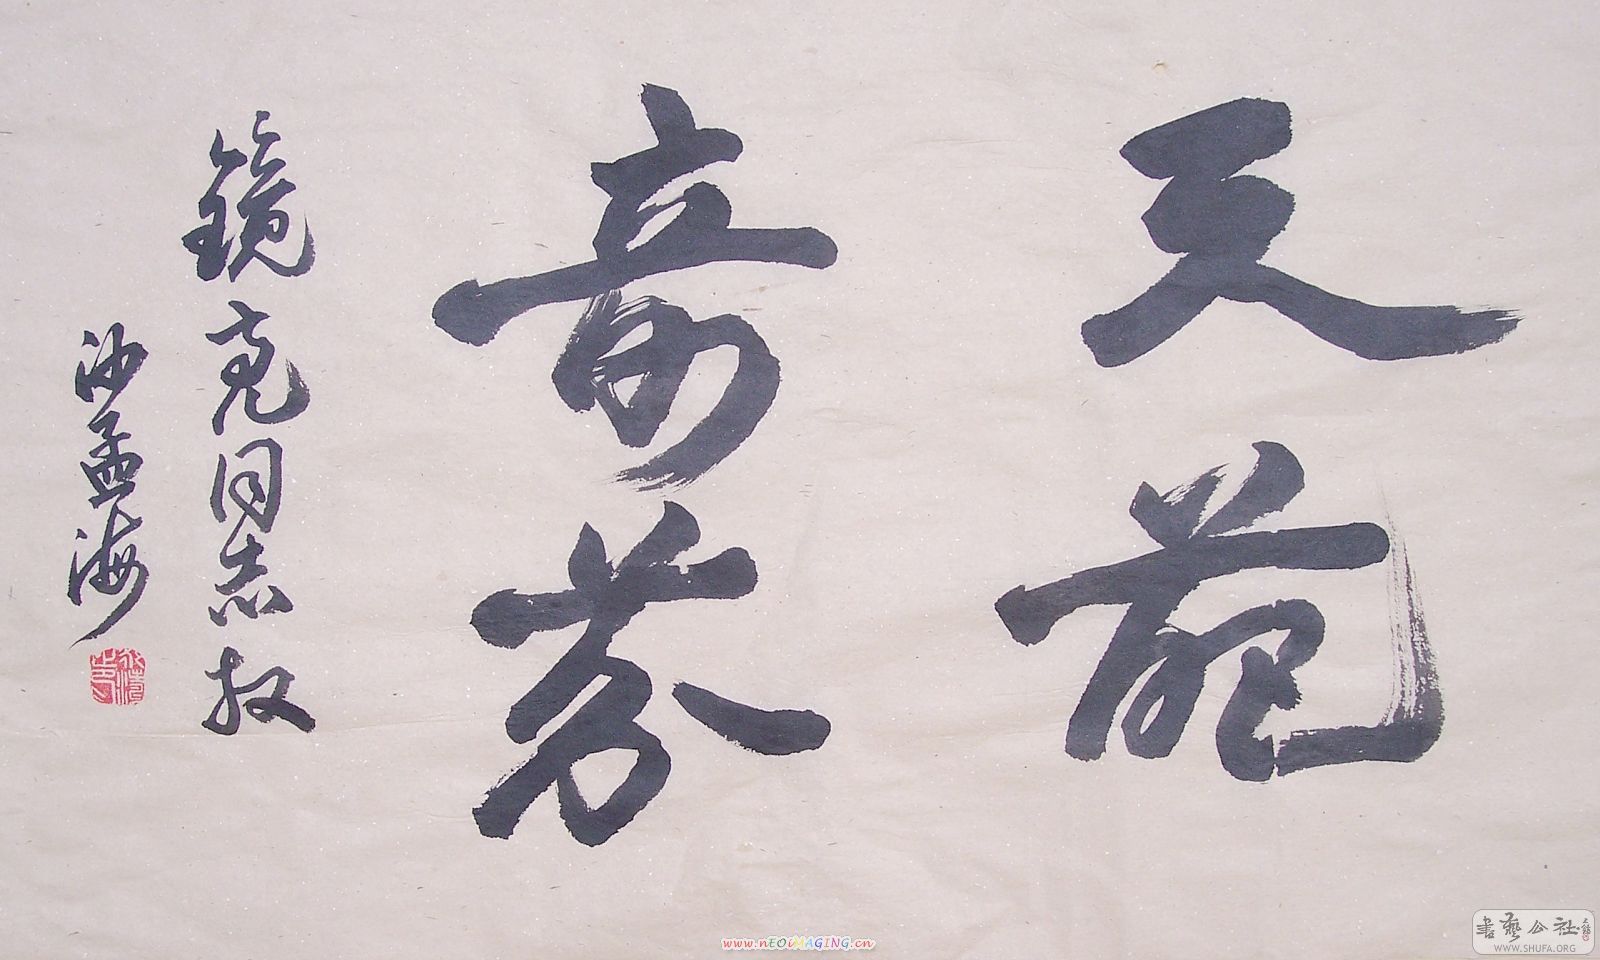 天苑
奇芬
镜亮同志教
沙孟海
www.nEOiMAGING.cn
書藝公社
WWW.SHUFA.ORG